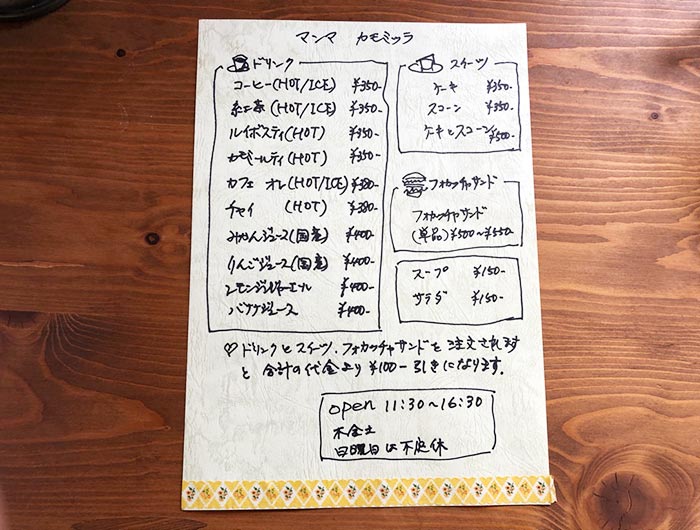 マンマ カモミツラ
ドリンク
コーヒー(HOT/ICE) ¥350-
紅茶(HOT/ICE) ¥350-
ルイボスティ(HOT) ¥350-
カモミールティ(HOT) ¥350-
カフェ オレ(HOT/ICE) ¥380-
チャイ (HOT) ¥380-
みかんジュース(国産) ¥400-
りんごジュース(国産) ¥400-
レモンジンジャーエール ¥400-
バナナジュース ¥400-
スイーツ
ケーキ ¥350-
スコーン ¥350-
ケーキとスコーン ¥500-
フォカッチャサンド
フォカッチャサンド
(単品)¥500~¥550-
スープ ¥150-
サラダ ¥150-
♡ドリンクとスイーツ、フォカッチャサンドを注文されます
と 合計の代金より¥100-引きになります。
open 11:30~16:30
木金土
日曜日は不定休